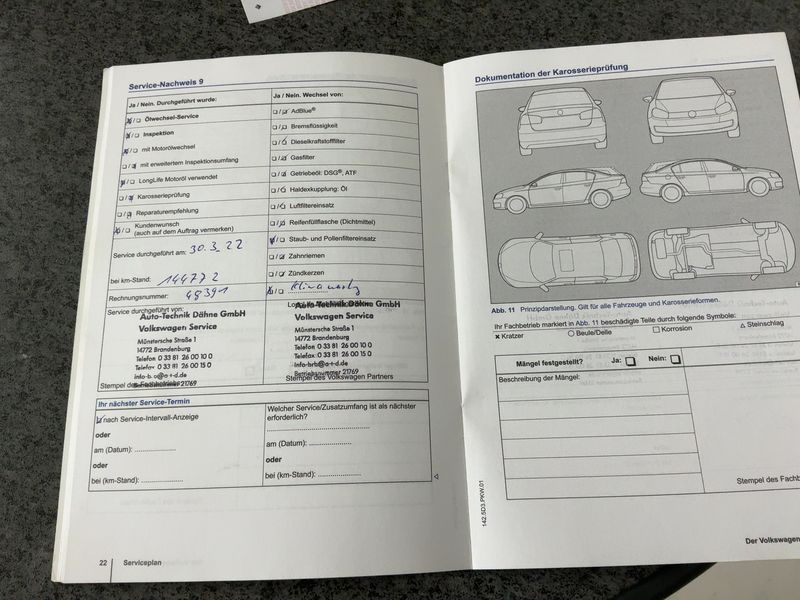 Service-Nachweis 9
Ja / Nein. Durchgeführt wurde:
Ölwechsel-Service
Inspektion
mit Motorölwechsel
mit erweitertem Inspektionsumfang
LongLife Motoröl verwendet
Karosserieprüfung
Reparaturempfehlung
Kundenwunsch
(auch auf dem Auftrag vermerken)
Service durchgeführt am: 30.3.22
bei km-Stand: 144772
Rechnungsnummer: 48391
Service durchgeführt von:
Auto-Technik Dähne GmbH
Volkswagen Service
Münstersche Straße 1
14772 Brandenburg
Telefon 0 33 81 26 00 10 0
Telefax 0 33 81 26 00 15 0
Stempel des
Ja / Nein. Wechsel von:
AdBlue®
Bremsflüssigkeit
Dieselkraftstofffilter
Gasfilter
Getriebeöl: DSG®, ATF
Haldexkupplung: Öl
Luftfiltereinsatz
Reifenfüllflasche (Dichtmittel)
Staub- und Pollenfiltereinsatz
Zahnriemen
Zündkerzen
Auto-Technik Dähne GmbH
Volkswagen Service
Münstersche Straße 1
14772 Brandenburg
Telefon 0 33 81 26 00 10 0
Telefax 0 33 81 26 00 15 0
info-brb@a-t-d.de
Betriebsnummer 21769
Stempel des Volkswagen Partners
Ihr nächster Service-Termin
nach Service-Intervall-Anzeige
oder
am (Datum): ..................
oder
bei (km-Stand): ..................
Welcher Service/Zusatzumfang ist als nächster
erforderlich?
am (Datum): ..................
oder
bei (km-Stand): ..................
22 Serviceplan
Dokumentation der Karosserieprüfung
Abb. 11 Prinzipdarstellung. Gilt für alle Fahrzeuge und Karosserieformen.
Ihr Fachbetrieb markiert in Abb. 11 beschädigte Teile durch folgende Symbole:
Kratzer Beule/Delle Korrosion Steinschlag
Mängel festgestellt? Ja: Nein:
Beschreibung der Mängel:
Stempel des Fachb
142.5D3.PKW.01
Der Volkswagen